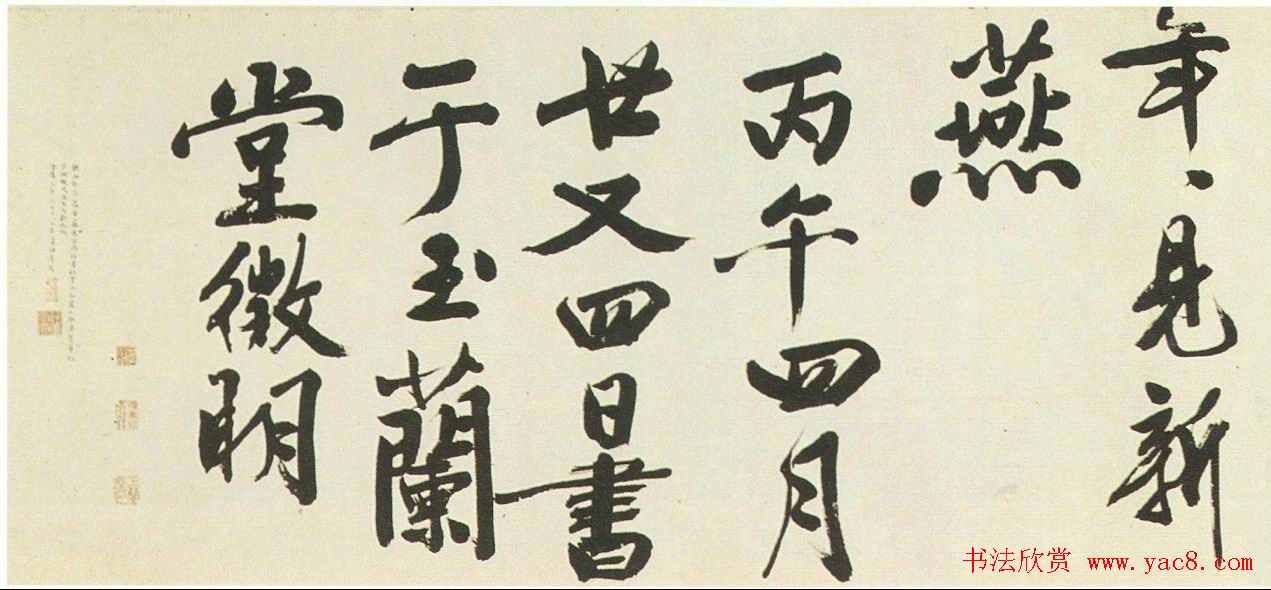 年、見新
燕
丙午四月
廿又四日書
于玉蘭
堂徵明
书法欣赏 www.yac8.com